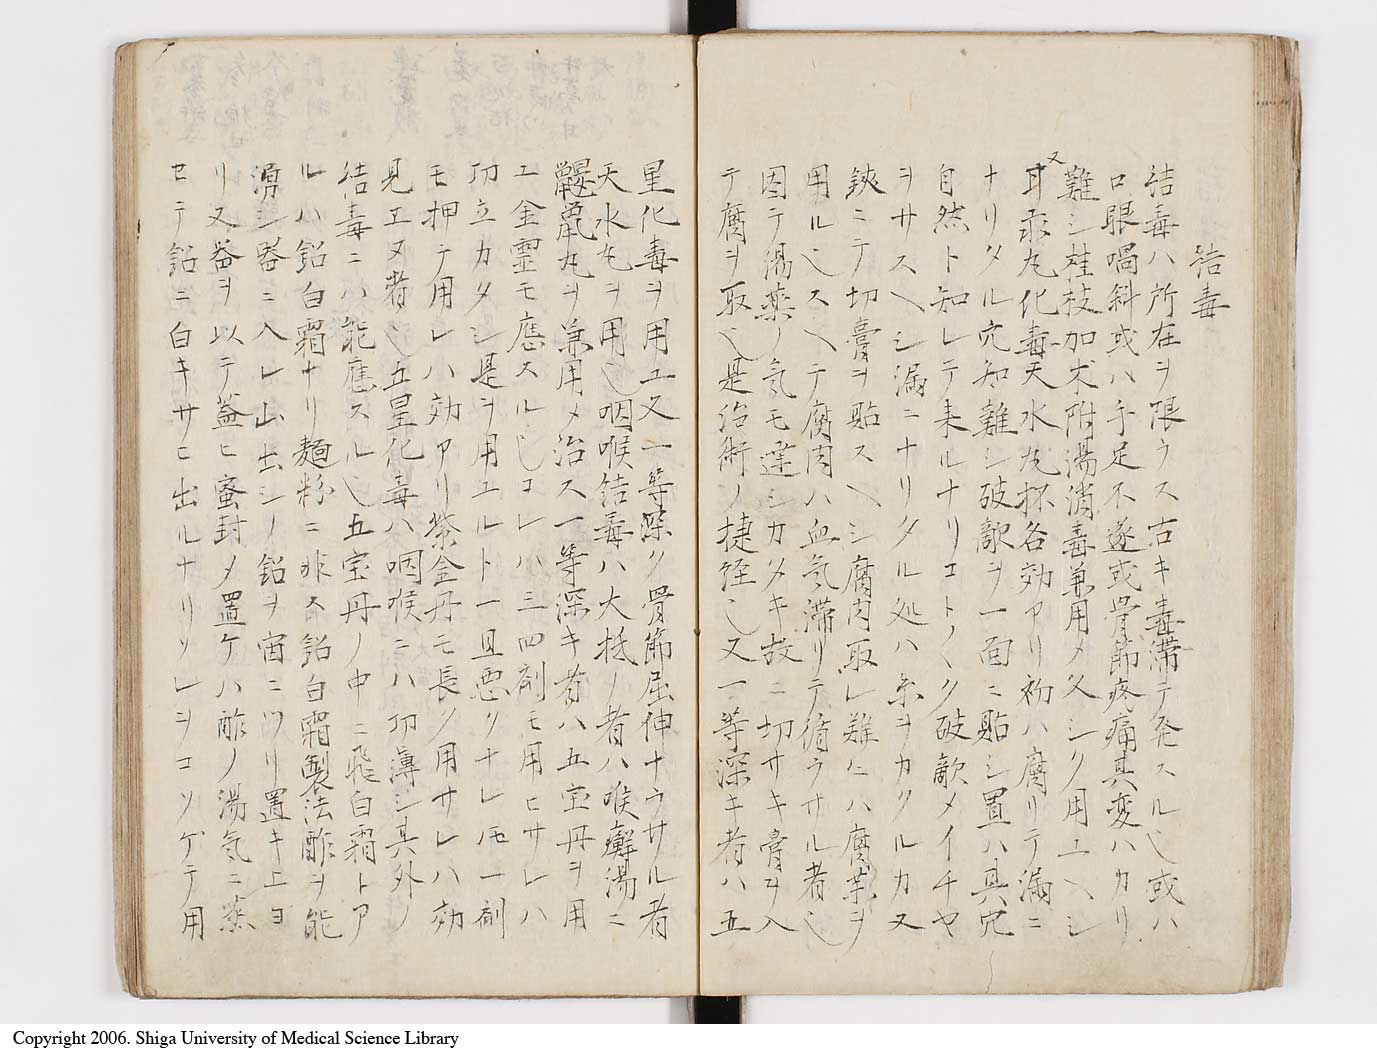 結毒
結毒ハ所在ヲ限ラス古キ毒滞テ発スル也或ハ
口眼喎斜或ハ手足不遂或骨節疼痛其変ハカリ
難シ桂枝加朮附湯消毒兼用メ久シク用ユヘシ
又
耳汞丸化毒天水丸杯各効アリ初ハ腐リテ漏ニ
ナリタル穴知難シ破敵ヲ一面ニ貼シ置ハ其穴
自然ト知レテ来ルナリコトノク破敵メイチヤ
ヲサスヘシ漏ニナリタル処ハ糸ヲカクルカ又
鋏ニテ切膏ヲ貼スヘシ腐肉取レ難ニハ腐薬ヲ
用ル也スヘテ腐肉ハ血気滞リテ循ラサル者也
因テ湯薬ノ気モ達シカタキ故ニ切サキ膏ヲ入
テ腐ヲ取也是治術ノ捷径也又一等深キ者ハ五
星化毒ヲ用ユ又一等深ク骨節屈伸ナラサル者
天水丸ヲ用也咽喉結毒ハ大抵ノ者ハ喉癬湯ニ
鼴鼠丸ヲ兼用メ治ス一等深キ者ハ五宝丹ヲ用
ユ金霊モ應スル也コレハ三四剤モ用ヒサレハ
功立カタシ是ヲ用ユルト一旦悪クナレ𪜈一剤
モ押テ用レハ効アリ紫金丹モ長ク用サレハ効
見エヌ者也五星化毒ハ咽喉ニハ功薄シ其外ノ
結毒ニハ能應スル也五宝丹ノ中ニ飛白霜トア
ルハ鉛白霜ナリ麺粉ニ非ス鉛白霜製法酢ヲ能
沸シ器ニ入レ山出シノ鉛ヲ宙ニツリ置キ上ヨ
リ又器ヲ以テ蓋ヒ蜜封メ置ケハ酢ノ湯気ニ蒸
セテ鉛ニ白キサヒ出ルナリソレヲコソゲテ用
Copyright 2006. Shiga University of Medical Science Library